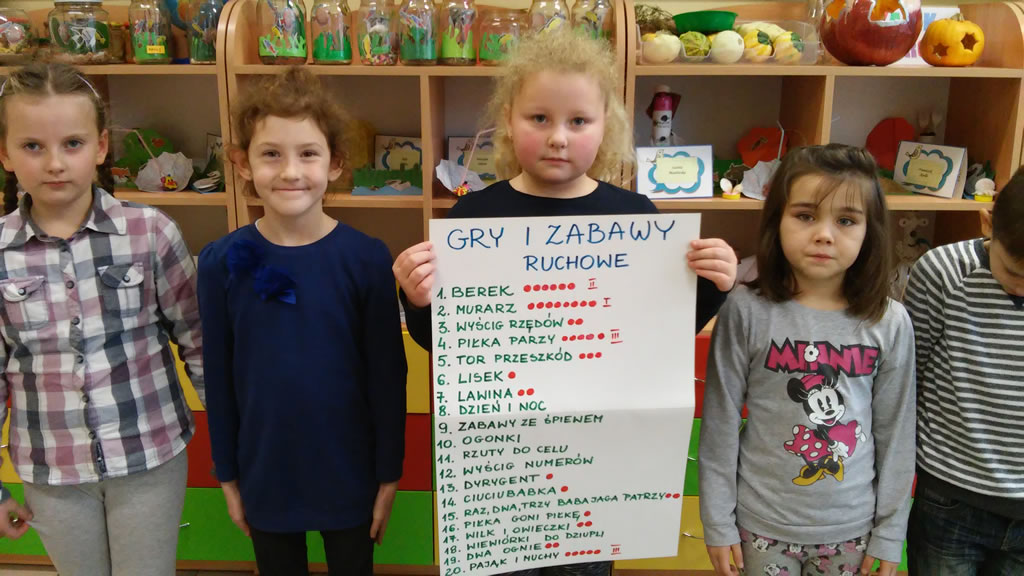 GRY I ZABAWY
RUCHOWE
1. BEREK II
2. MURARZ I
3. WYŚCIG RZĘDÓW
4. PIŁKA PARZY III
5. TOR PRZESZKÓD
6. LISEK
7. LAWINA
8. DZIEŃ I NOC
9. ZABAWY ZE ŚPIENEM
10. OGONKI
11. RZUTY DO CELU
12. WYŚCIG NUMERÓW
13. DYRYGENT
14. CIUCIUBABKA
15. RAZ, DWA, TRZY BABA JAGA PATRZY
16. PIŁKA GONI PIŁKĘ
17. WILK I OWIECZKI
18. WIEWIÓRKI DO DZIUPLI
19. DWA OGNIE
20. PAJĄK I MUCHY III
MINNIE